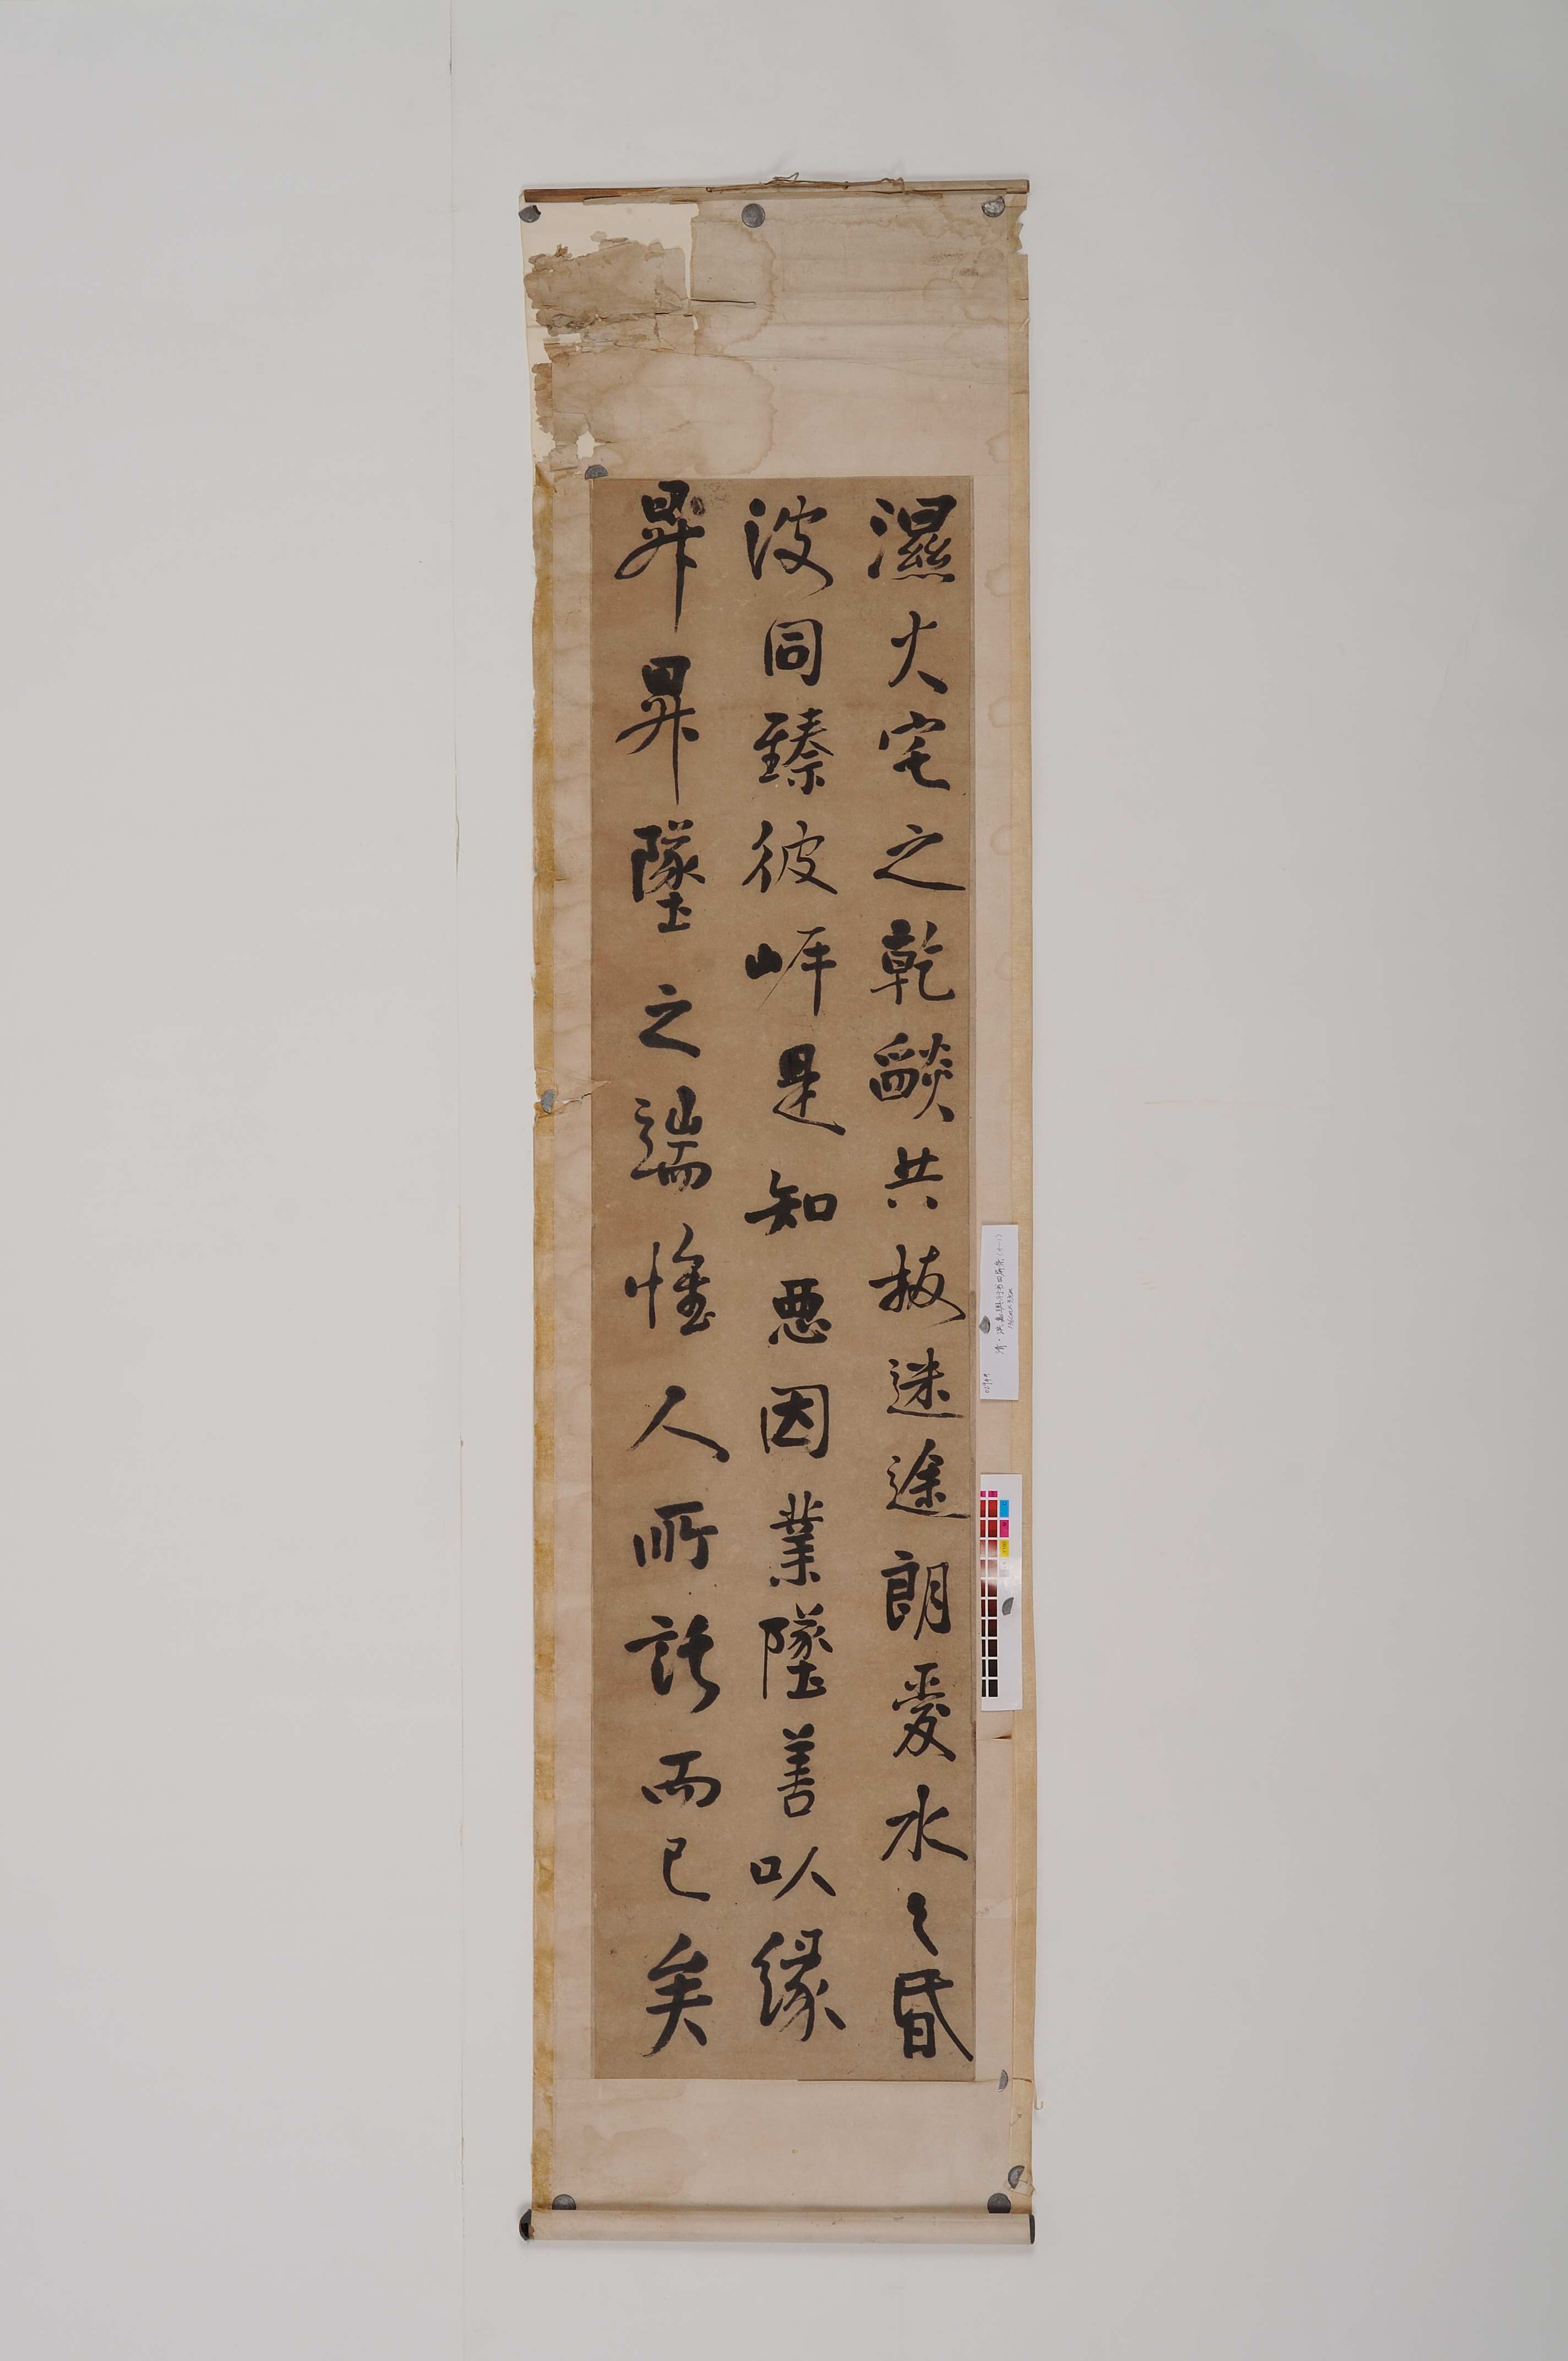 濕火宅之乾燄共拔迷途朗愛水之昏
波同臻彼岸是知惡因業墜善以緣
昇昇墜之端惟人所託而已矣